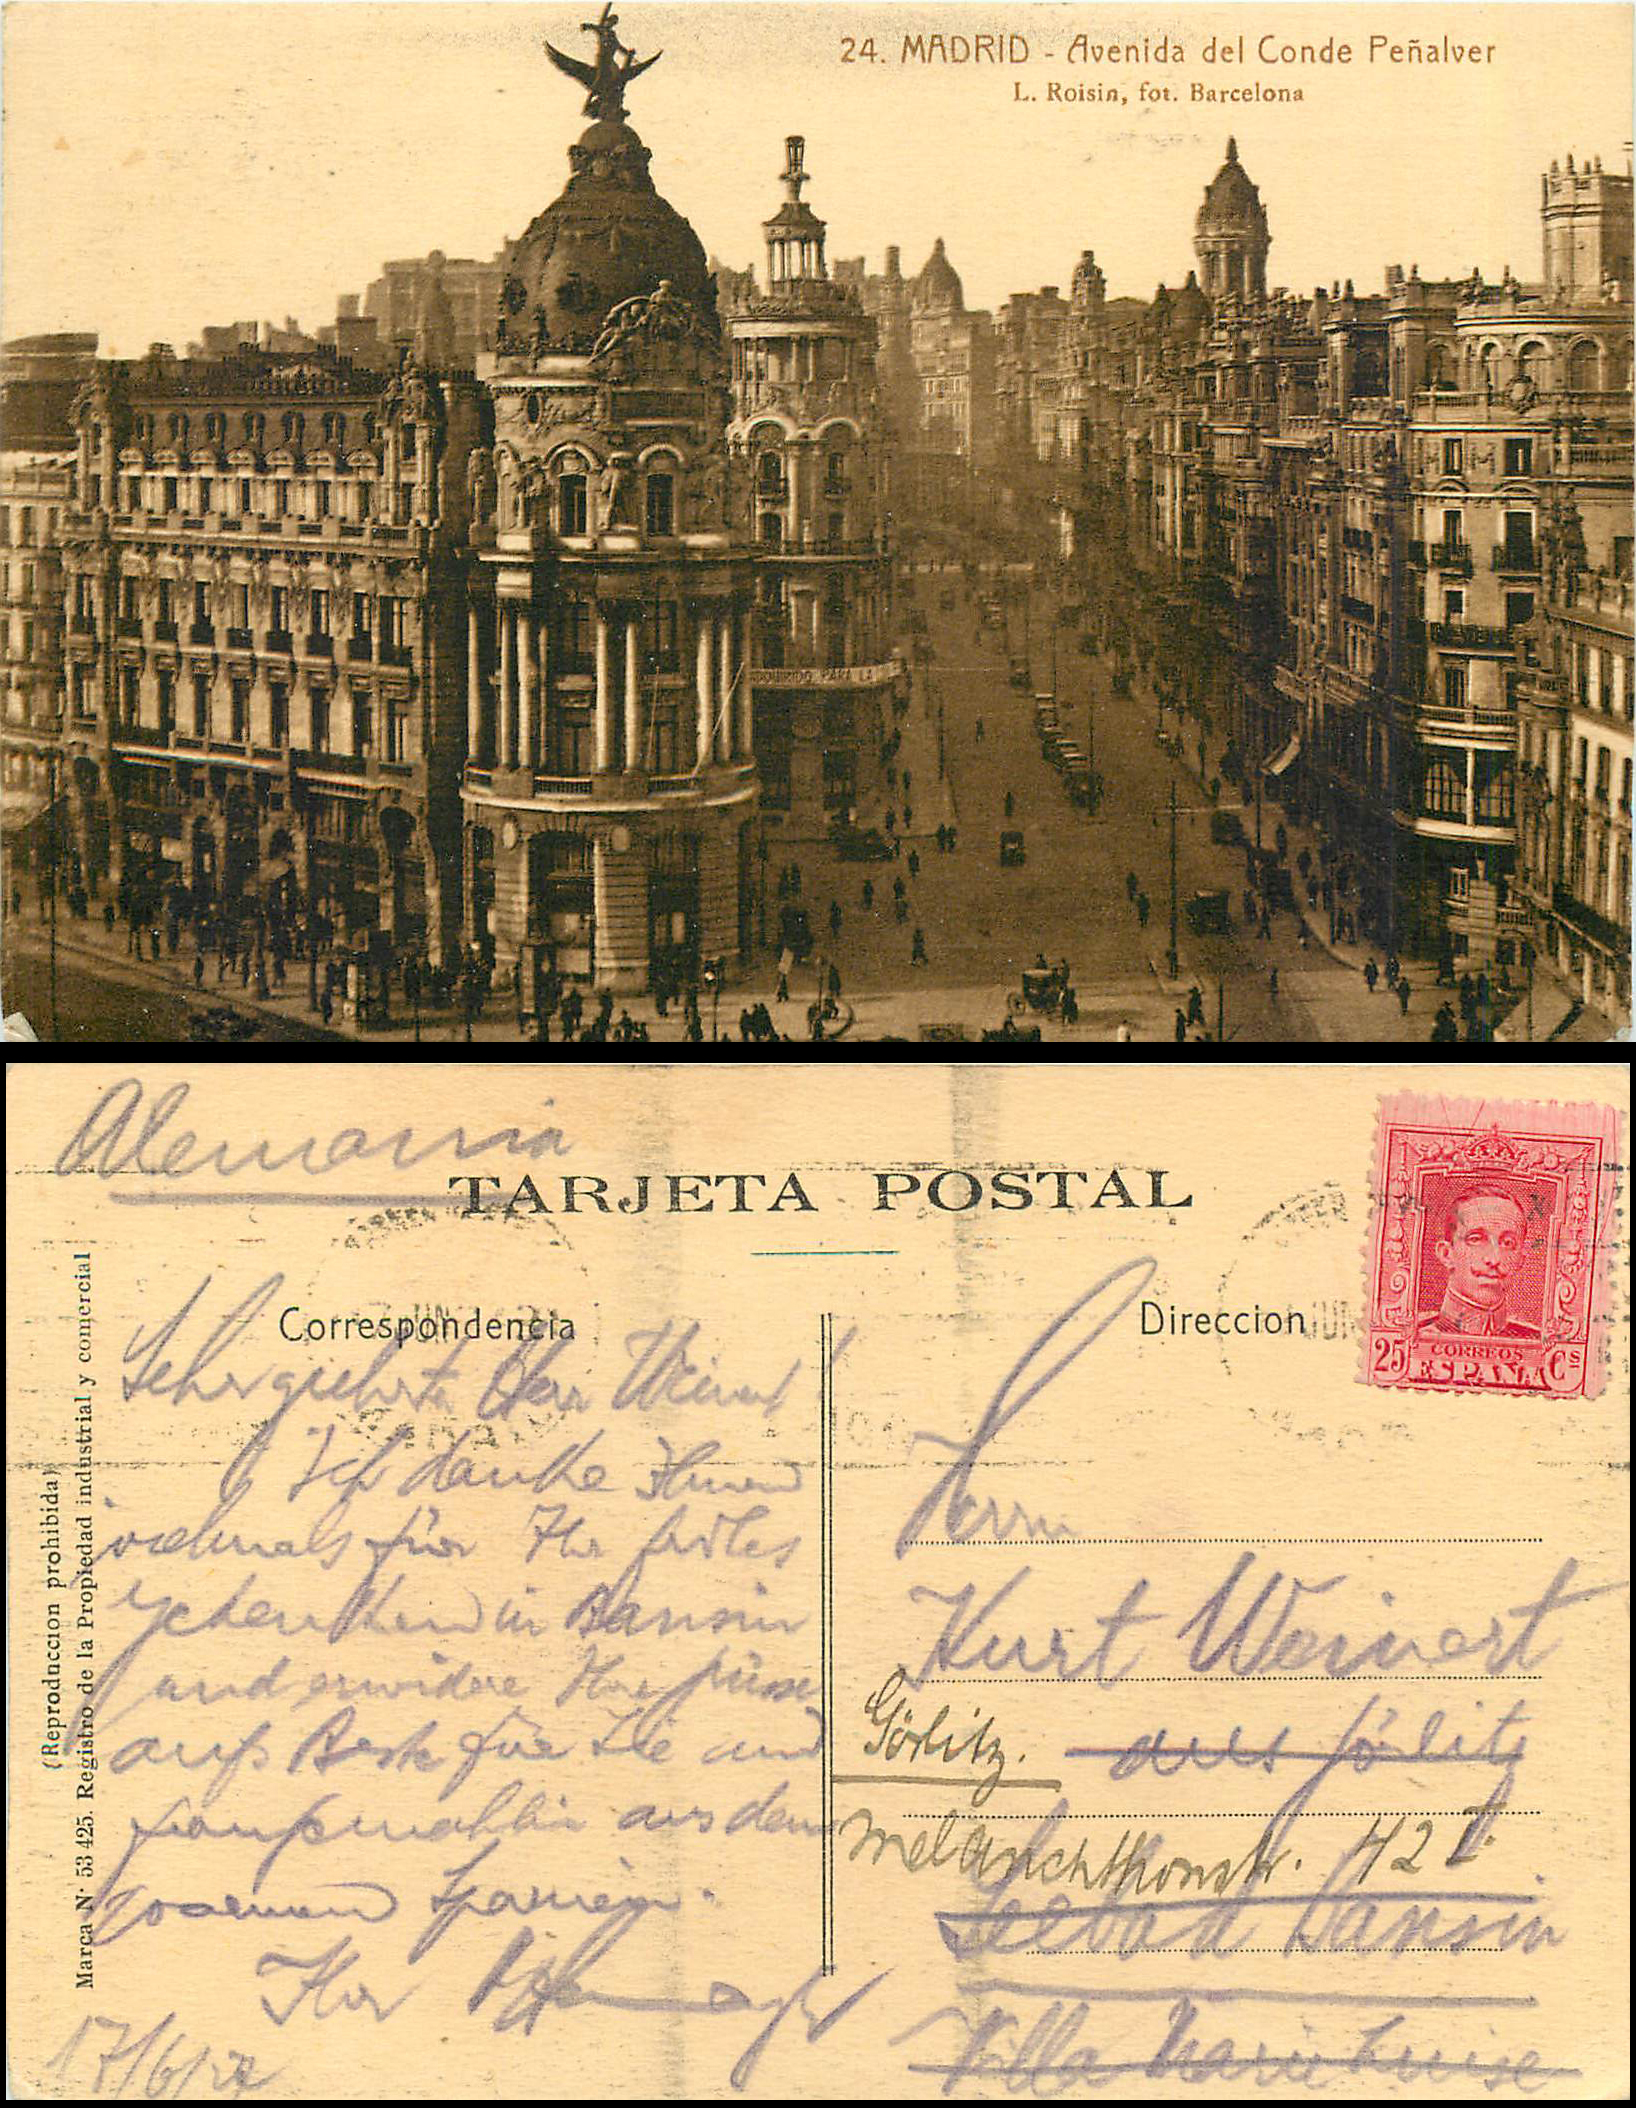 24. MADRID - Avenida del Conde Peñalver
L. Roisin, fot. Barcelona
PARA LA
Alemania
TARJETA POSTAL
Correspondencia
Direccion
25 CORREOS Cs
ESPAÑA
JUN
JUN
(Reproduccion prohibida)
Marca N· 53 425. Registro de la Propiedad industrial y comercial
Sehr geehrter Herr Weinert!
Ich danke Ihnen
für Ihr
in Bansin
und erwidere Ihre
aufs Beste für Sie und
aus dem
Spanien.
Ihr
17/6/27
Herrn
Kurt Weinert
aus Görlitz
Görlitz.
Melanchthonstr. 42 I.
Seebad Bansin
Villa Marie Luise